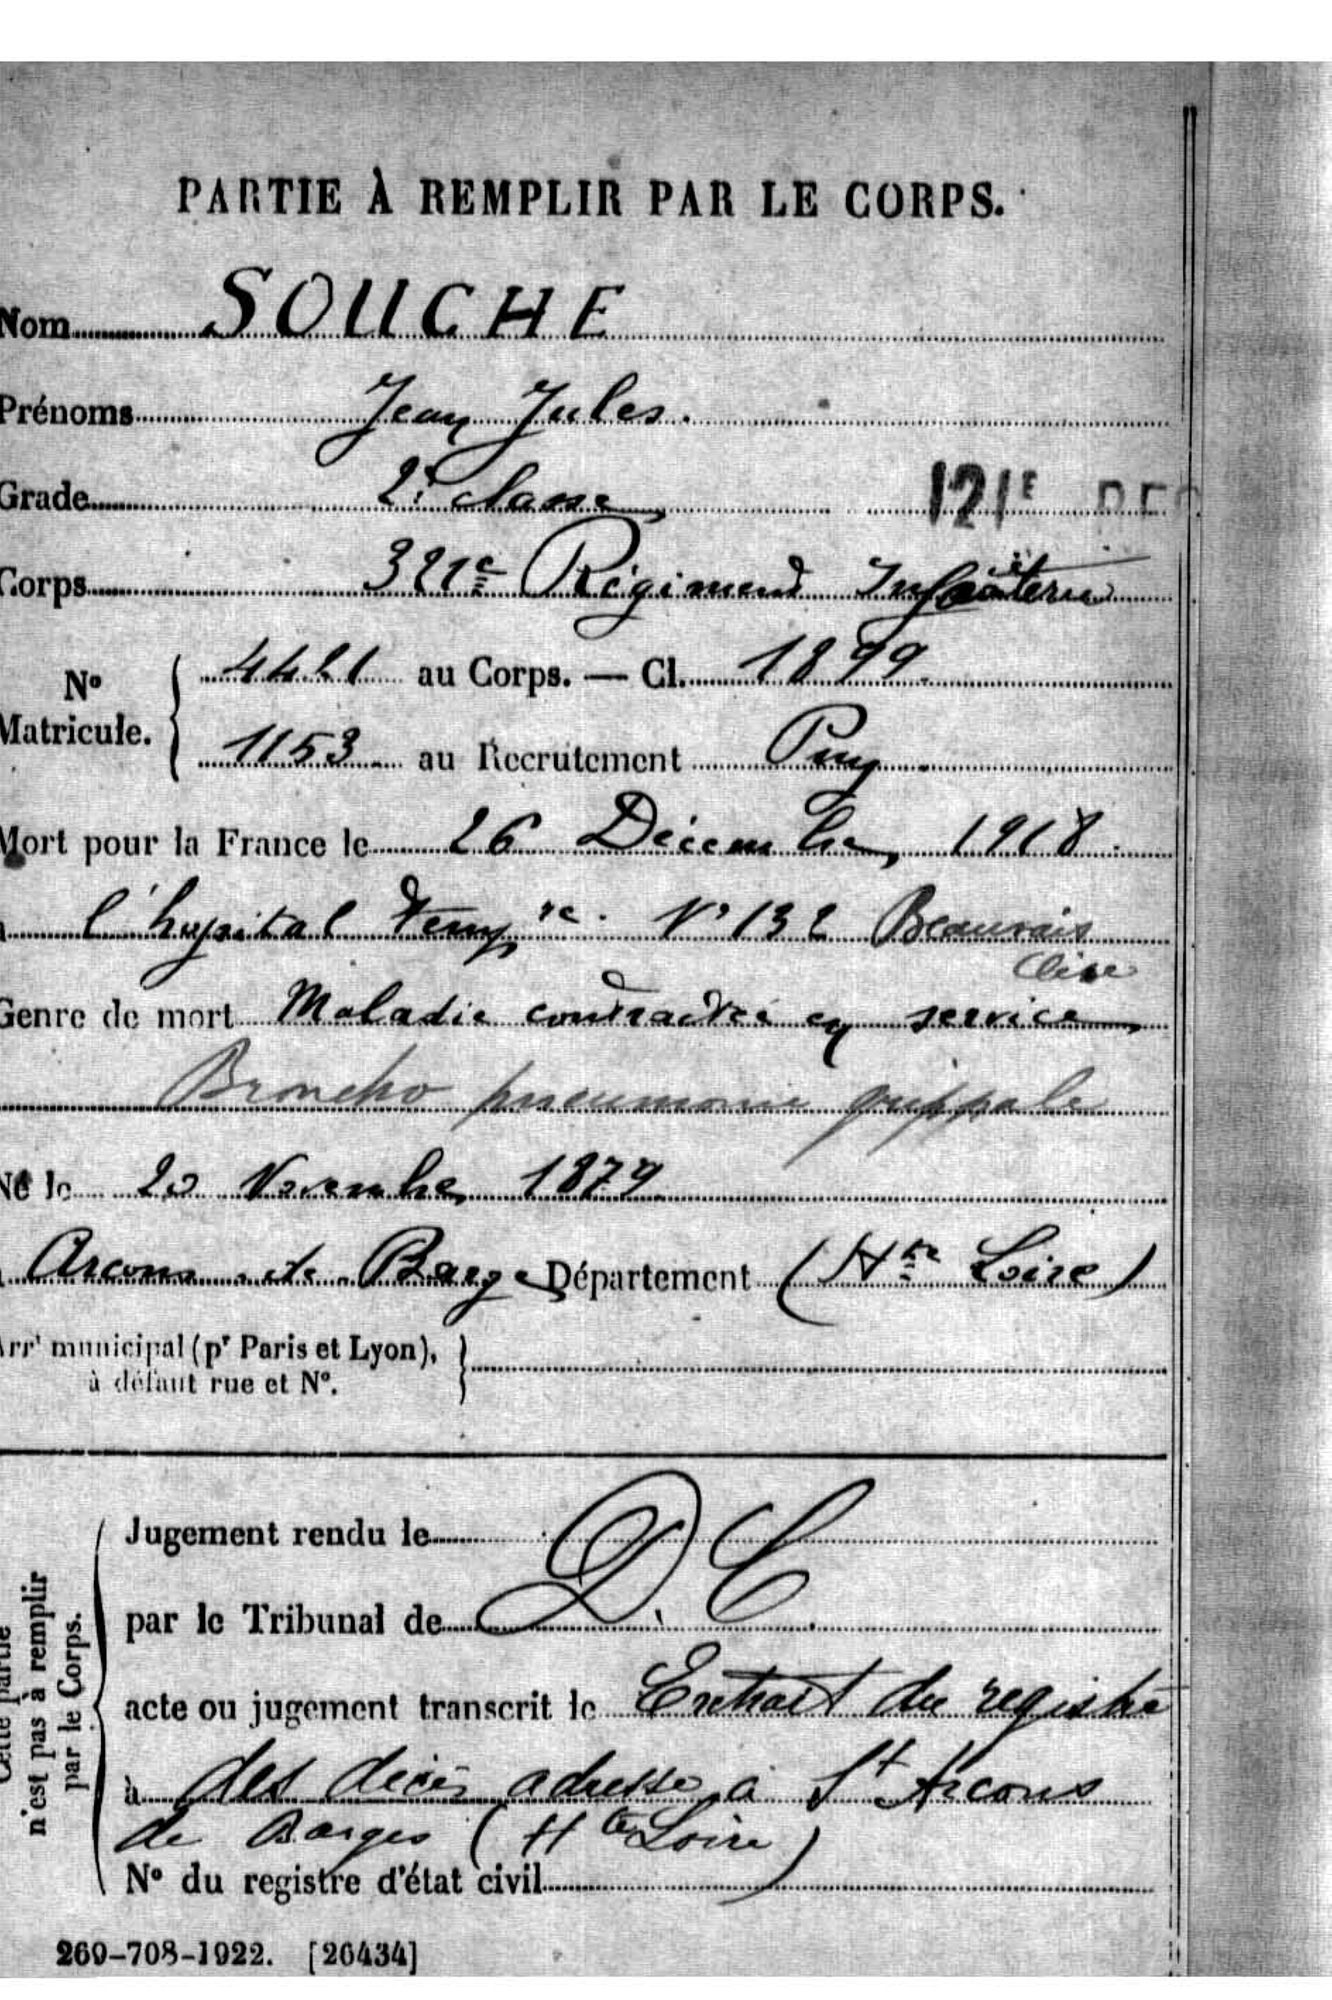 PARTIE À REMPLIR PAR LE CORPS.
Nom SOUCHE
Prénoms Jean Jules.
Grade 2e classe 121E
Corps 321e Régiment Infanterie
No Matricule. 4421 au Corps. — Cl. 1899.
1153 au Recrutement Puy
Mort pour la France le 26 Décembre 1918
l'hopital tempre. No 132 Beauvais
Oise
Genre de mort Maladie contractée en service
Broncho pneumonie grippale
Né le 20 Novembre 1879
Arcons de Barge Département (Hte Loire)
Arrt municipal (pr Paris et Lyon),
à défaut rue et No.
Jugement rendu le
D. C.
par le Tribunal de
acte ou jugement transcrit le Extrait du registre
à des décès adressé à St Arcons
de Barges (Hte Loire)
No du registre d'état civil
Cette partie
n'est pas à remplir
par le Corps.
269-708-1922. [26434]